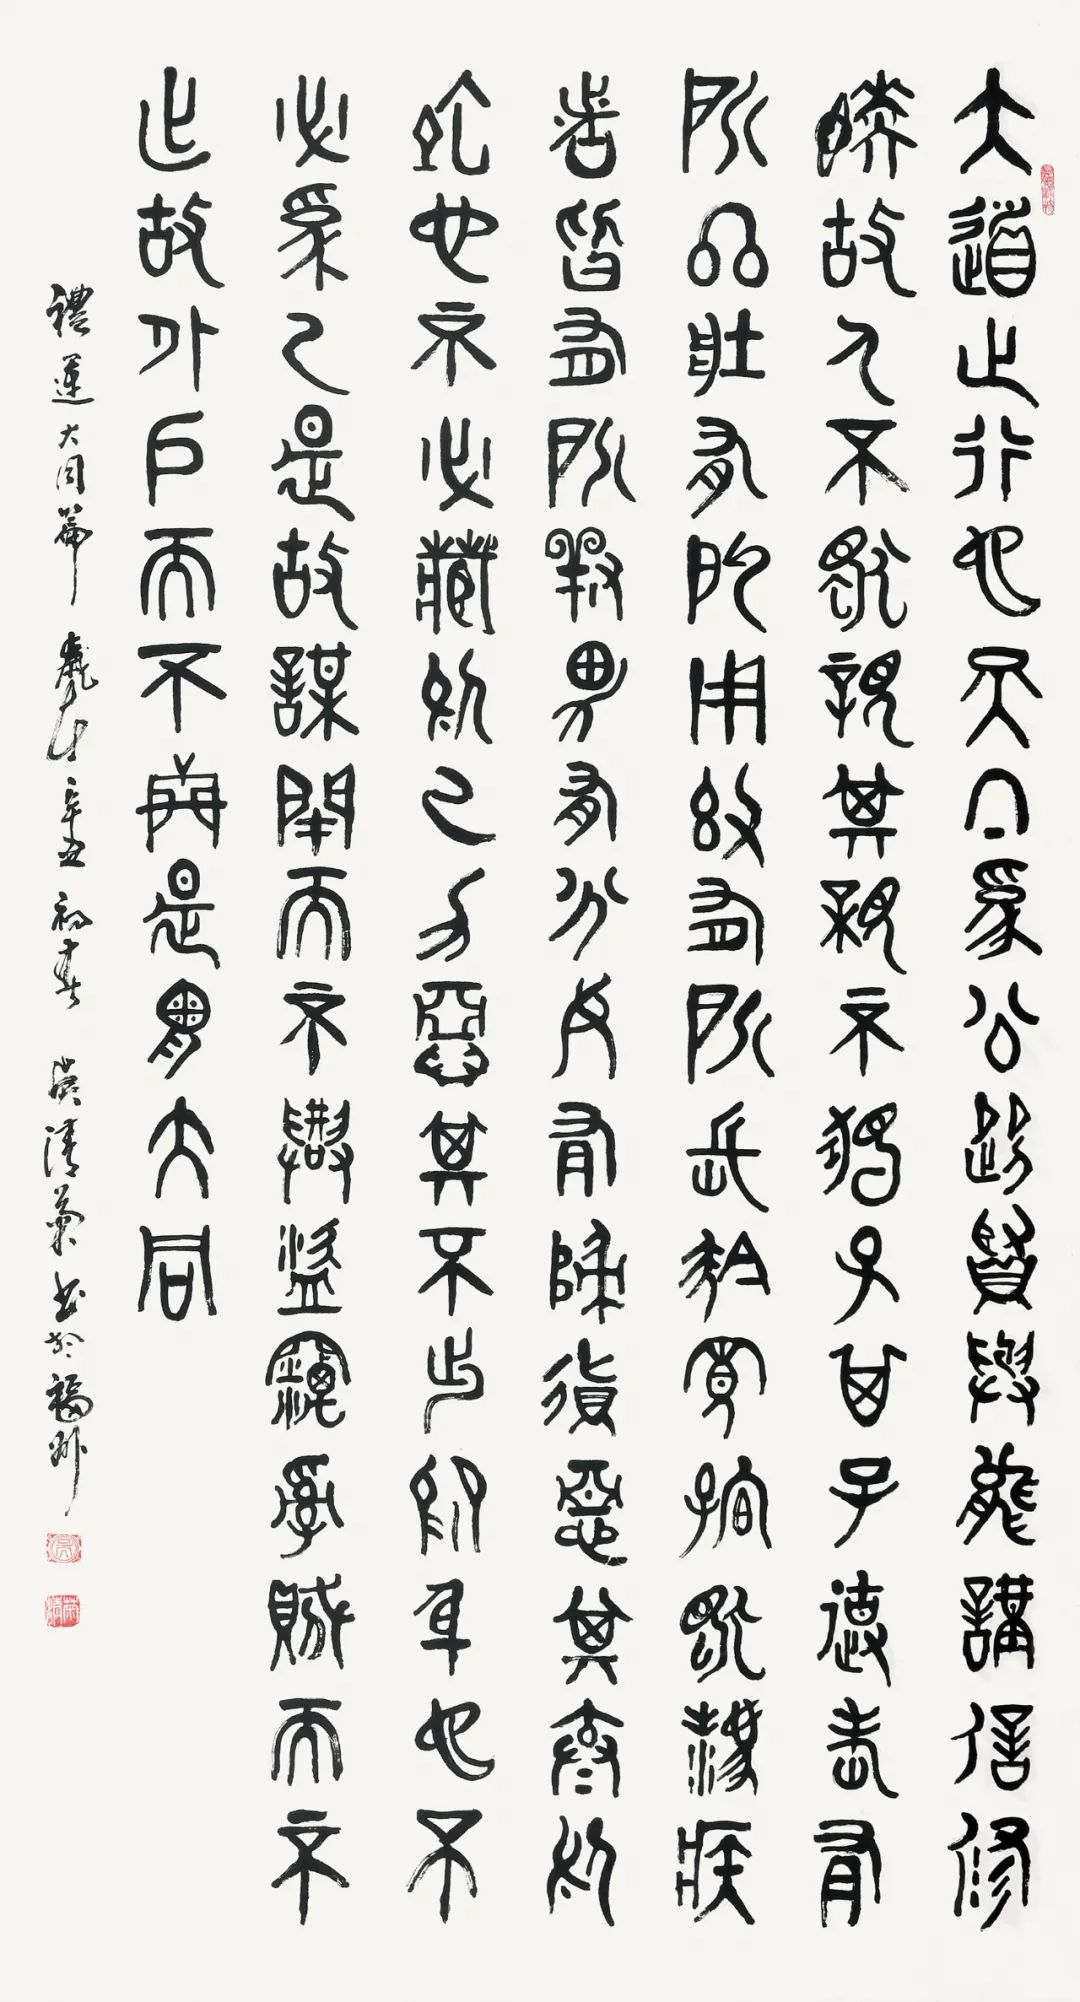 大道之行也天下為公選賢與能講信修
睦故人不獨親其親不獨子其子使老有
所終壯有所用幼有所長矜寡孤獨廢疾
者皆有所養男有分女有歸貨惡其棄於
地也不必藏於己力惡其不出於身也不
必為己是故謀閉而不興盜竊亂賊而不
作故外戶而不閉是謂大同
禮運大同篇 歲在辛丑初春 吳清菊書於福州